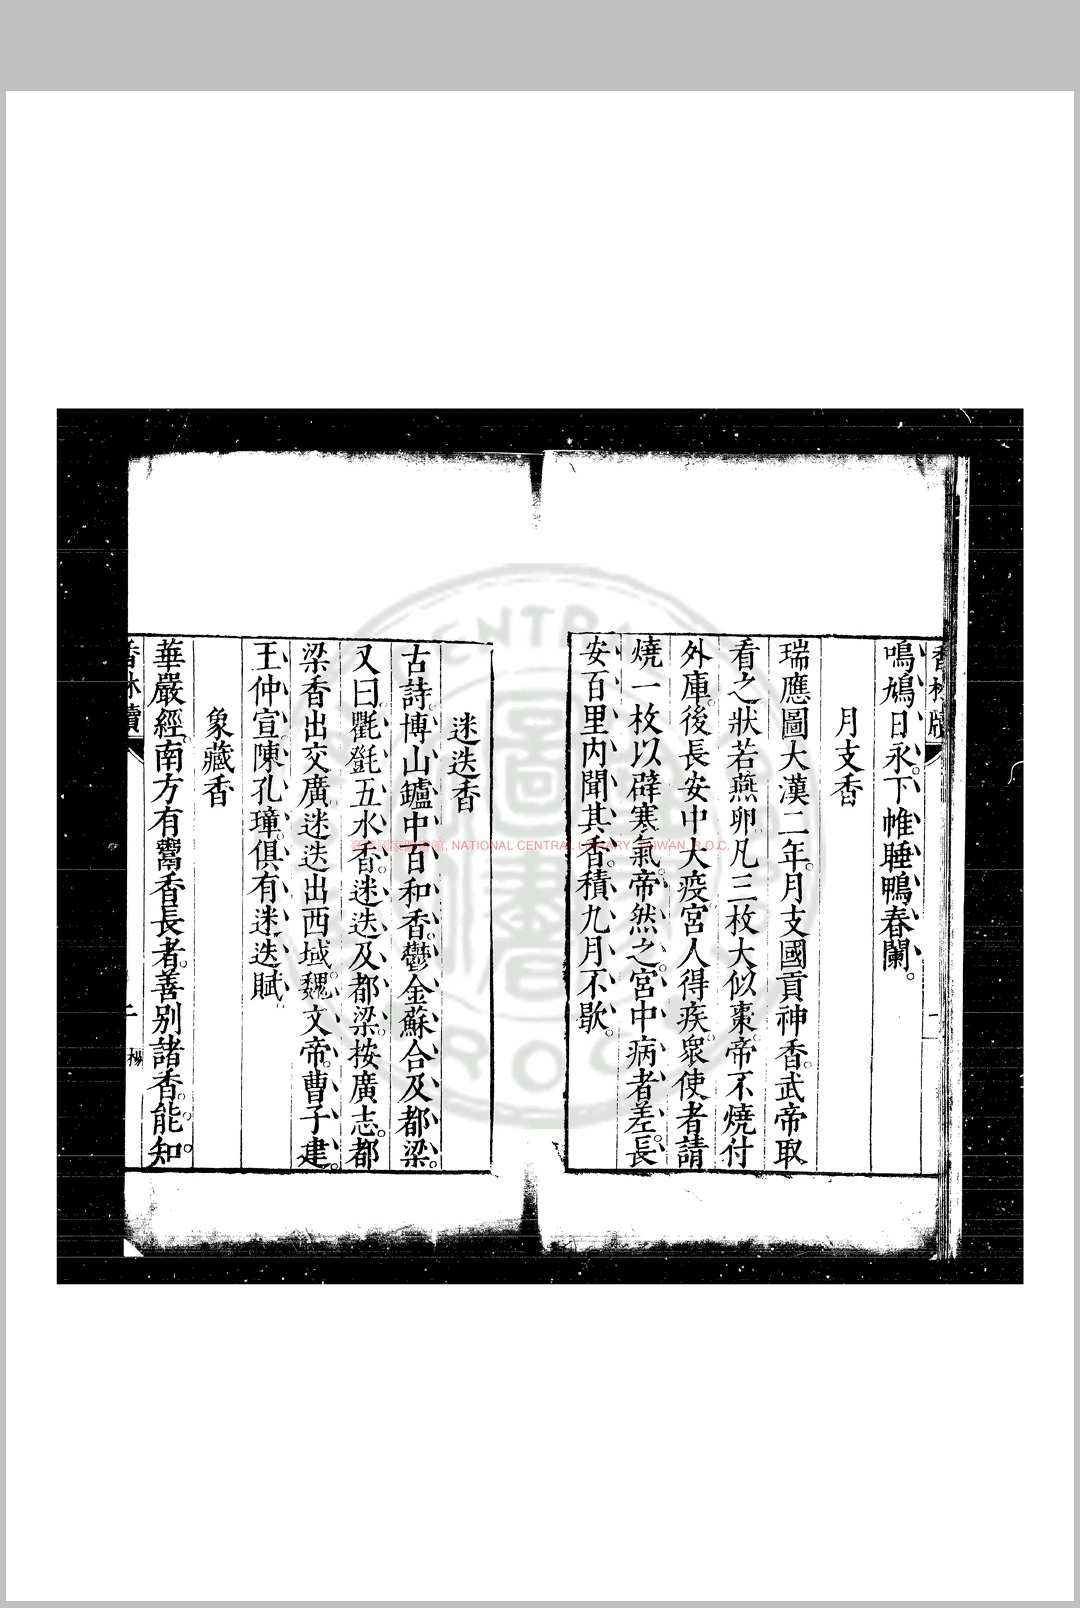 鳴鳩日永。下帷睡鴨春闌。
月支香
瑞應圖。大漢二年。月支國貢神香。武帝取
看之狀若燕卵。凡三枚大似棗。帝不燒。付
外庫。後長安中大疫。宮人得疾。衆使者請
燒一枚以辟寒氣。帝然之。宮中病者差。長
安百里內聞其香。積九月不歇。
迷迭香
古詩。博山鑪中百和香。鬱金蘇合及都梁。
又曰。氍㲪五水香。迷迭及都梁。按廣志。都
梁香出交廣。迷迭出西域。魏文帝。曹子建。
王仲宣。陳孔璋。俱有迷迭賦。
象藏香
華嚴經。南方有鬻香長者。善別諸香。能知
NATIONAL CENTRAL LIBRARY, TAIWAN, R.O.C.